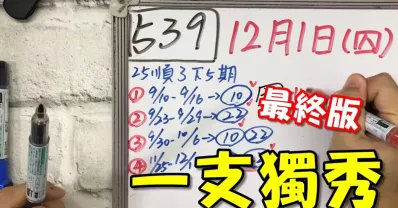 539 12月1日(四)
25順3下5期
① 9/10-9/16→⑩
最終版
② 9/23-9/29→22
③ 9/30-10/6→⑩ 22
④ 11/25-12/1
一支獨秀